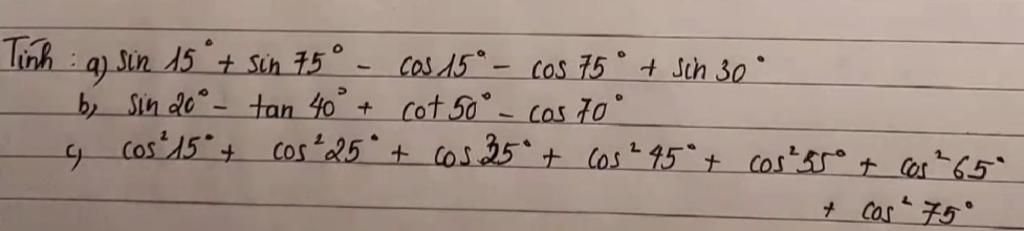 Tính : a) sin 15° + sin 75° - cos 15° - cos 75° + sin 30°
b) sin 20° - tan 40° + cot 50° - cos 70°
c) cos² 15° + cos² 25° + cos 35° + cos² 45° + cos² 55° + cos² 65°
+ cos² 75°